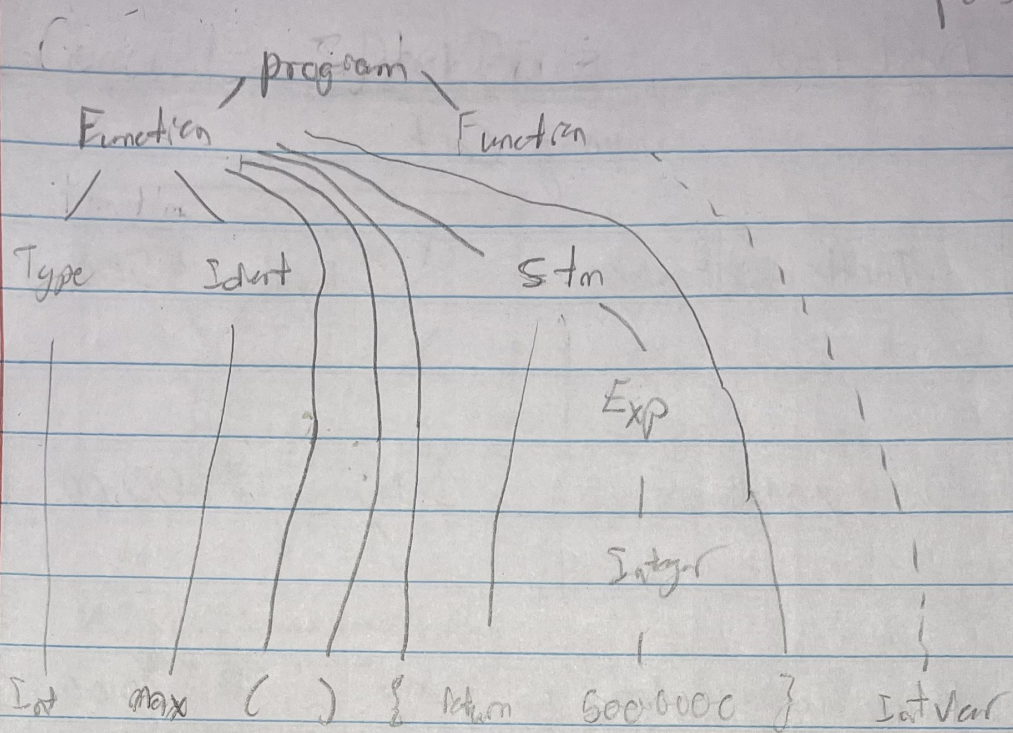 program
Function Function
Type Ident Stm
Exp
Integer
Int max ( ) { return }